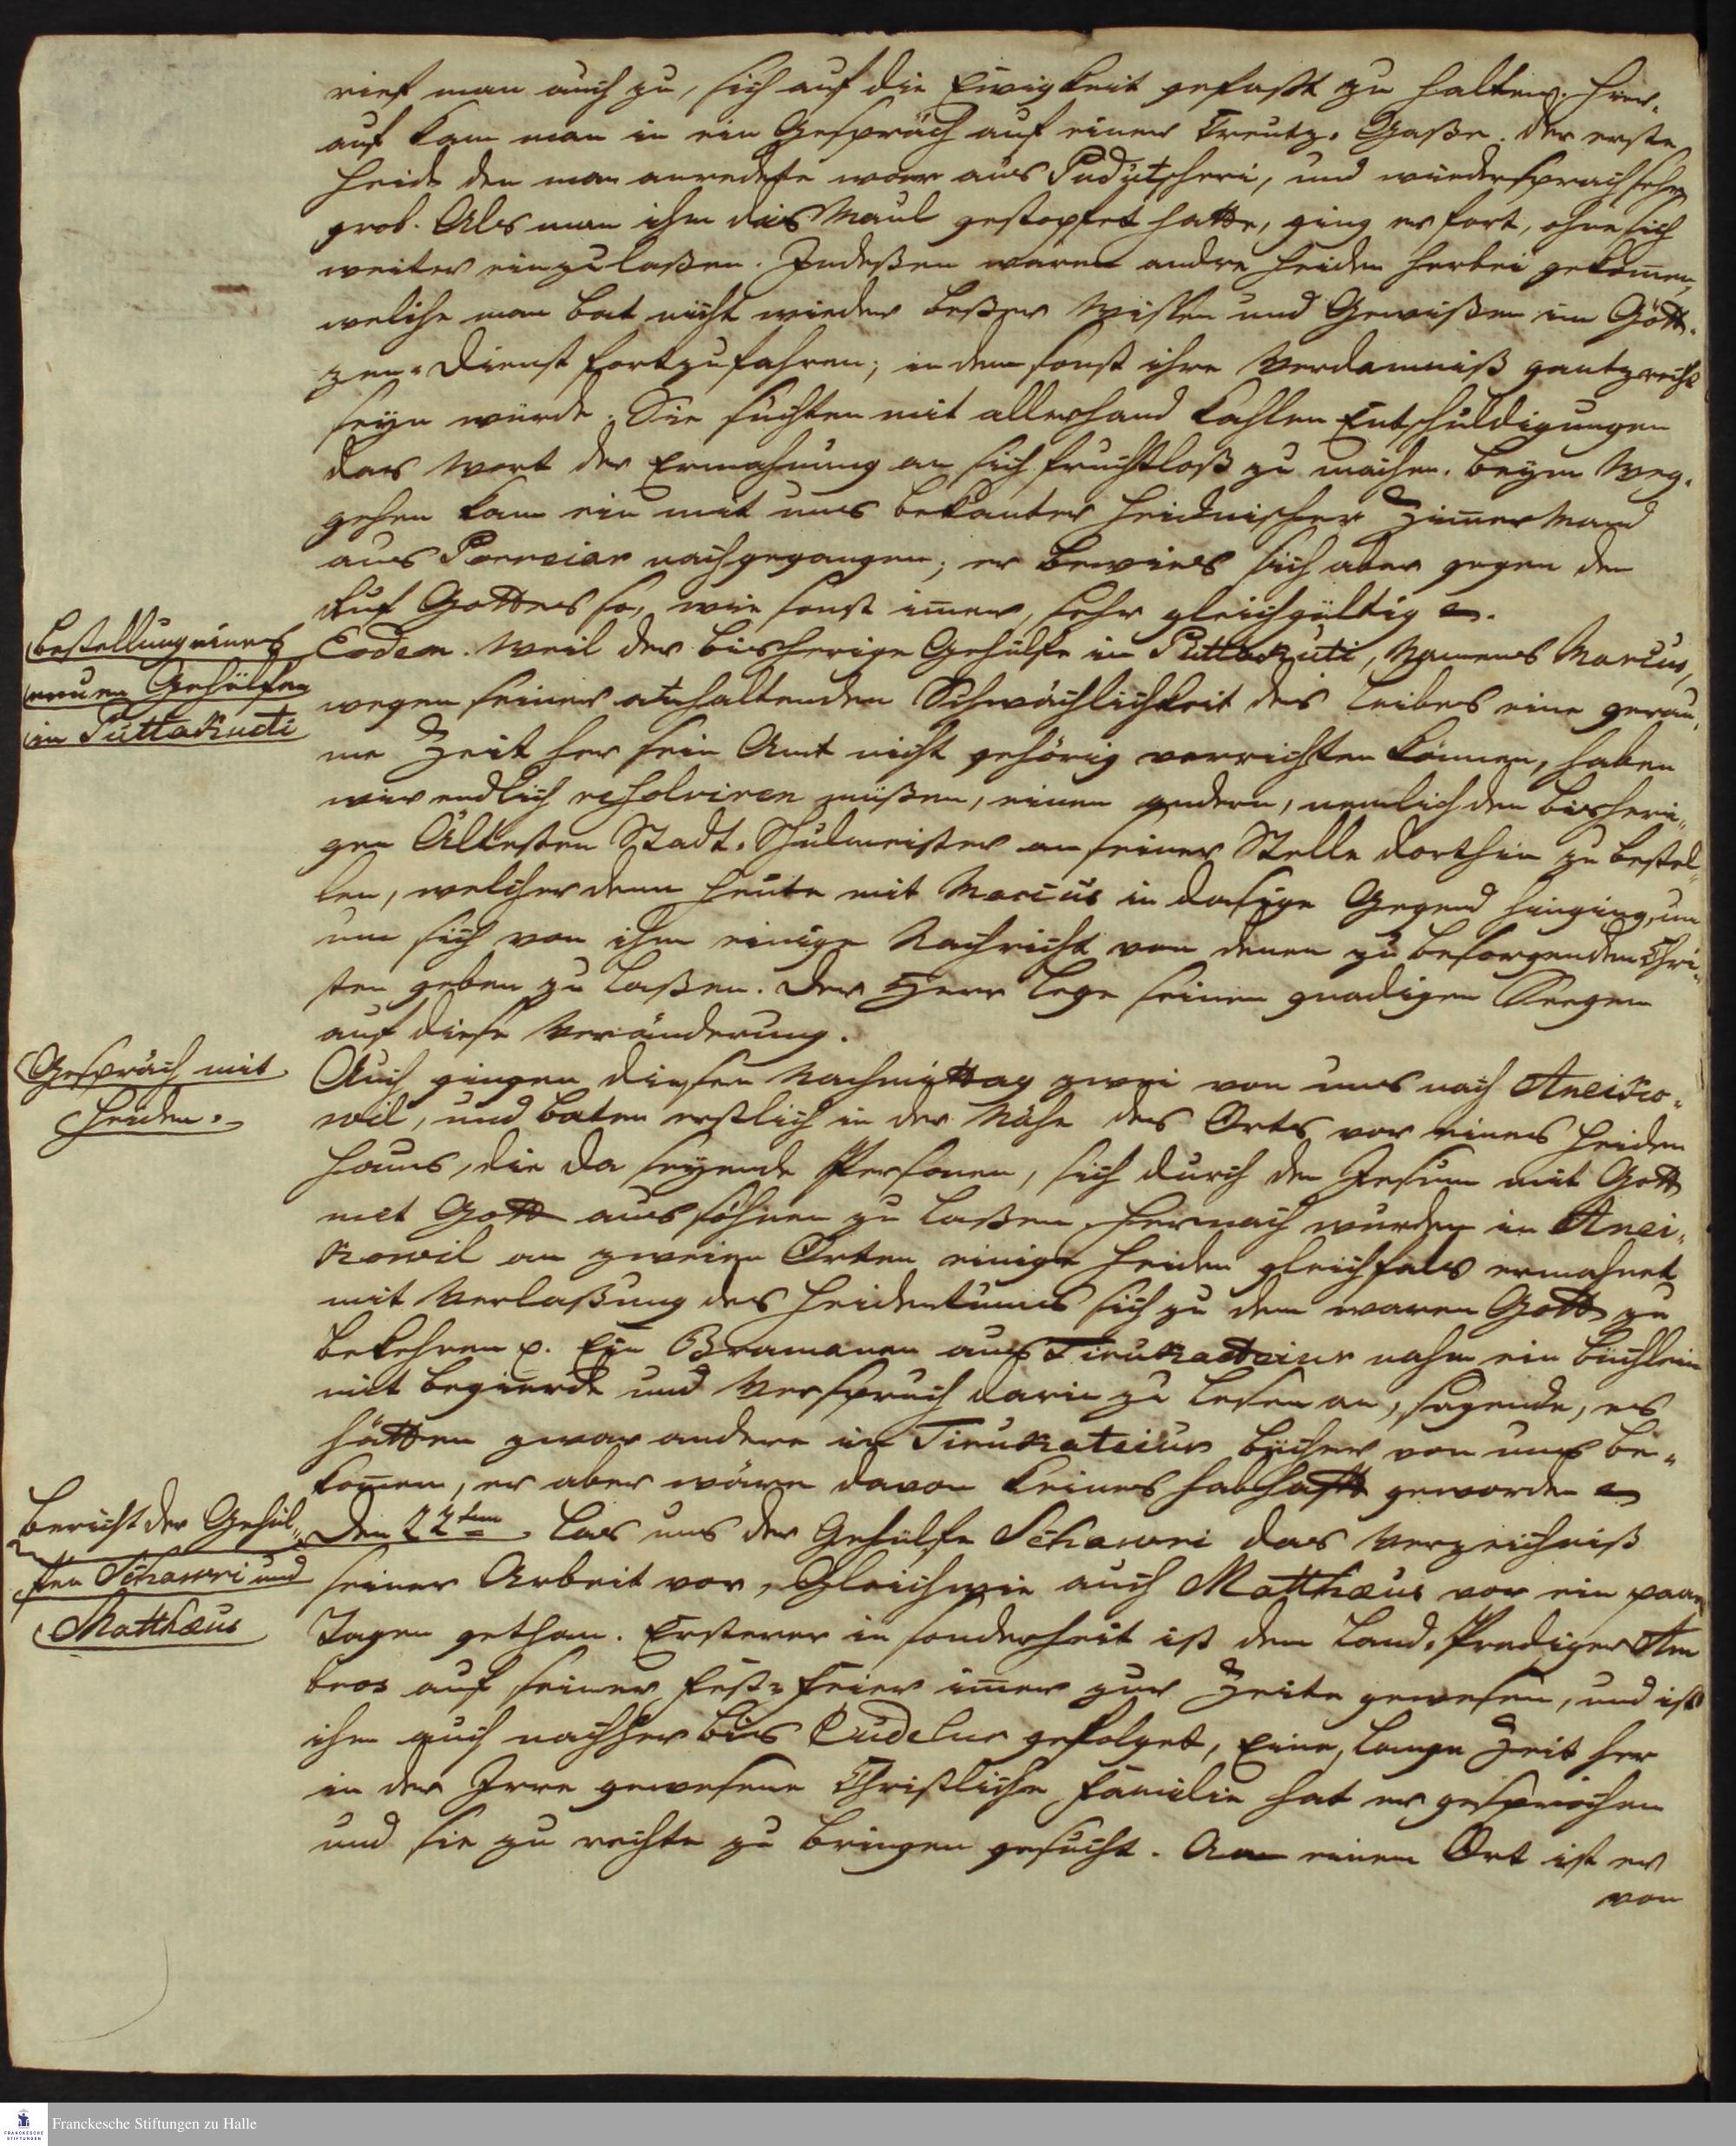 rief man auch zu, sich auf die Ewigkeit gefaßt zu halten. Hier-
auf kam man in ein Gespräch auf einer Creutz-Gaße. der erste
Heide den man anredete war aus Pudutscheri, und wiedersprach sehr
grob. Als man ihm das Maul gestopfet hatte, ging er fort, ohne sich
weiter einzulaßen. Indeßen waren andre Heiden herbei gekom̅en,
welche man bat nicht wieder beßer Wißen und Gewißen im Göt-
zen-Dienst fortzufahren; indem sonst ihre Verdamniß gantz recht
seyn würde. Sie suchten mit allerhand kahlen Entschuldigungen
das Wort der Ermahnung an sich fruchtloß zu machen. Beym Weg-
gehen kam ein mit uns bekanter heidnischer Zim̅erMann
aus Poreiar nachgegangen; er bewies sich aber gegen den
Ruf Gottes so, wie sonst im̅er, sehr gleichgültig
Bestellung eines
neuen Gehülfen
in Puttakudi
Eodem. Weil der bisherige Gehülfe in Puttakudi, Namens Marcus,
wegen seiner anhaltenden Schwächlichkeit des Leibes eine gerau-
me Zeit her sein Amt nicht gehörig verrichten können, haben
wir endlich resolviren müßen, einen andern, nemlich den bisheri-
gen Ältesten Stadt-Schulmeister an seiner Stelle dorthin zu bestel-
len, welcher denn heute mit Marcus in dasige Gegend hinging, um
um sich von ihm einige Nachricht von denen zu besorgenden Chri-
sten geben zu laßen. Der Herr lege seinen gnädigen Seegen
auf diese Veränderung.
Gespräch mit
Heiden.
Auch gingen diesen Nachmittag zwei von uns nach Aneiko-
wil, und baten erstlich in der Nähe des Orts vor eines Heiden
Hause, die da seyende Personen, sich durch den Jesum mit Gott
mit Gott aussöhnen zu laßen. Hernach wurden in Anei-
kowil an zweien Orten einige Heiden gleichfals ermahnet
mit Verlaßung des Heidentums sich zu dem waren Gott zu
bekehren p. Ein Bramaner aus Tirukadeiur nahm ein Büchlein
mit Begierde und Verspruch darin zu lesen an, sagende, es
hätten zwar andere in Tirukadeiur Bücher von uns be-
kom̅en, er aber wäre davon keines habhaft geworden
Bericht der Gehül-
fen Schawri und
Matthæus
Den 22ten las uns der Gehülfe Schawri das Verzeichniß
seiner Arbeit vor, Gleichwie auch Matthæus vor ein paar
Tagen gethan. Ersterer in sonderheit ist dem Land-Prediger Am
bros auf seiner Fest-Feier im̅er zur Seite gewesen, und ist
ihm auch nachher bis Cudelur gefolget, Eine, lange Zeit her
in der Irre gewesene Christliche Familie hat er gesprochen
und sie zu rechte zu bringen gesucht. An einem Ort ist er
von
Franckesche Stiftungen zu Halle